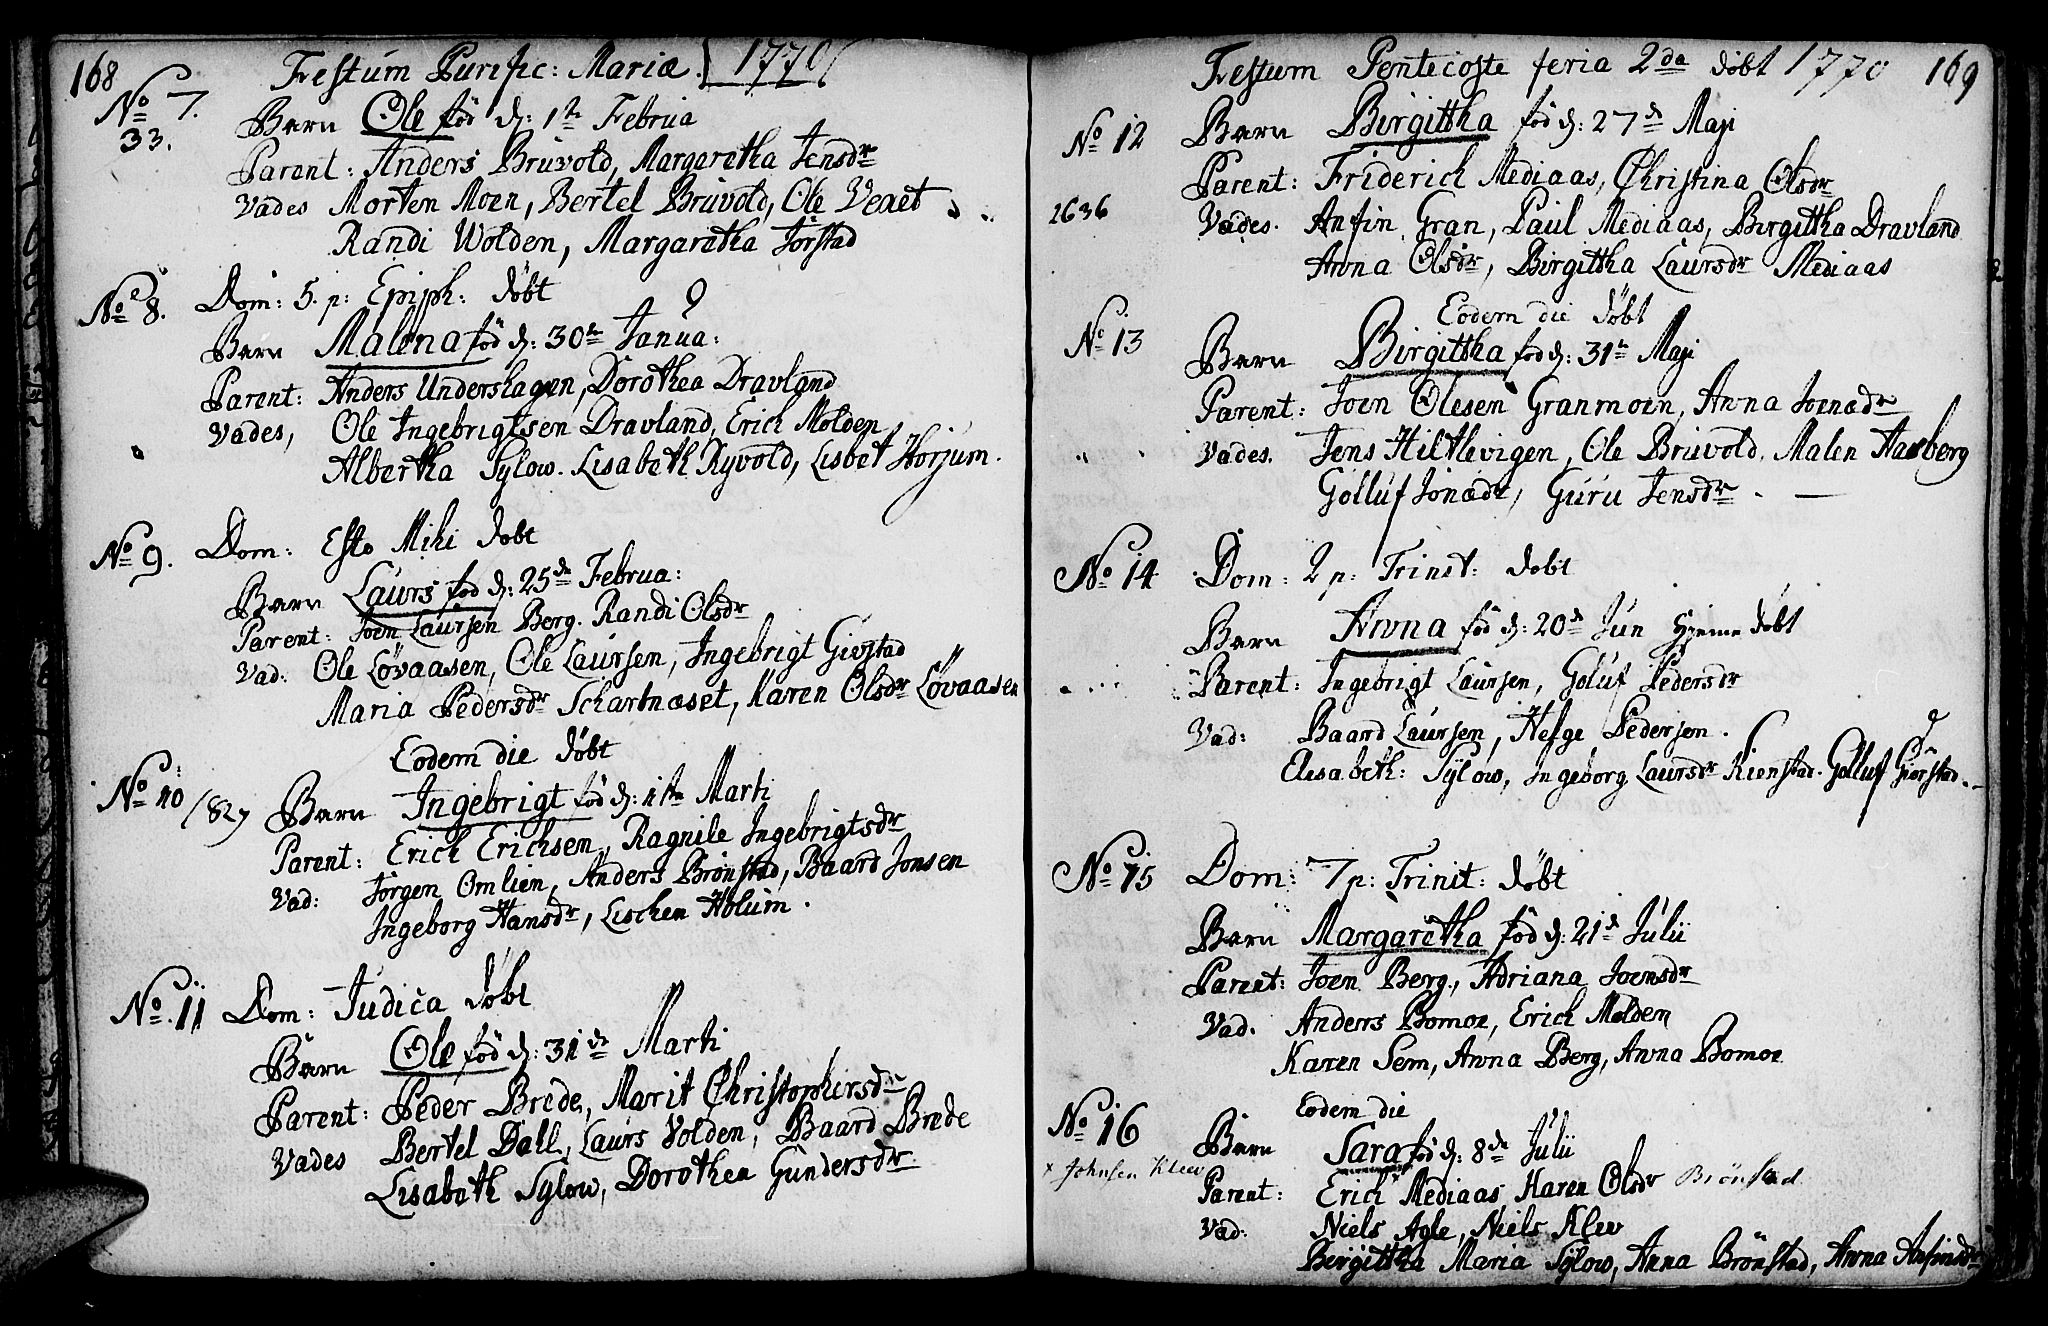 168 Festum Purific: Mariæ. 1770
No 7.
33.
Barn Ole fød d: 1te Februa
Parent: Anders Bruvold, Margaretha Jensdr
Vades Morten Moen, Bertel Bruvold, Ole Veaet
Randi Wolden, Margaretha Jørstad
No 8. Dom: 5. p: Epiph: døbt
Barn Malena fød d: 30te Janua:
Parent: Anders Undershagen, Dorothea Dravland
Vades, Ole Ingebrigtsen Dravland, Erich Molden
Albertha Sylow. Lisabeth Ryvold, Lisbet Horjum.
No 9. Dom: Esto Mihi døbt
Barn Laurs fød d: 25de Februa:
Parent: Joen Laursen Berg. Randi Olsdr
Vad: Ole Løvaasen, Ole Laursen, Ingebrigt Givstad
Maria Pedersdr Schartnæset, Karen Olsdr Løvaasen
Eodem die døbt
No 10 1827 Barn Ingebrigt fød d: 1ste Marti
Parent: Erich Erichsen, Ragnile Ingebrigtsdr
Vad: Jørgen Omlien, Anders Brønstad, Baard Jonsen
Ingeborg Hansdr, Lischen Holum.
No. 11 Dom: Judica døbt
Barn Ole fød d: 31te Marti
Parent: Peder Brede, Marit Christophersdr
Vades Bertel Dall, Laurs Volden, Baard Brede
Lisabeth Sylow, Dorothea Gundersdr
Festum Pentecoste feria 2da døbt 1770 169
No 12 Barn Birgittha fød d: 27de Maji
Parent: Friderich Mediaas, Christina Olsdr
2636 Vades. Anfin Gran, Paul Mediaas, Birgittha Dravland
Anna Olsdr, Birgittha Laursdr Mediaas
Eodem die døbt
No 13 Barn Birgittha fød d: 31te Maji
Parent: Joen Olesen Granmoen, Anna Joensdr
Vades. Jens Hiltlevigen, Ole Bruvold. Malen Aasberg
Golluf Jonsdr, Guru Jensdr.
No 14 Dom: 2 p: Trinit: døbt
Barn Anna fød d: 20de Jun Hjeme døbt
Parent: Ingebrigt Laursen, Goluf Pedersdr
Vad: Baard Laursen, Helge Pedersen.
Elisabeth: Sylow, Ingeborg Laursdr Kienstad. Golluf Giørstad.
No 15 Dom: 7 p: Trinit: døbt
Barn Margaretha fød d: 21de Julii
Parent: Joen Berg, Adriana Joensdr
Vad. Anders Bomoe, Erich Molden
Karen Sem, Anna Berg, Anna Bomoe
Eodem die
No 16 Barn Sara fød d: 8de Julii
x Johnsen Klew
Parent: Erich Mediaas Karen Olsdr Brönstad
Vad: Niels Agle, Niels Klew
Birgittha Maria Sylow, Anna Brønstad, Anna Anfinsdr